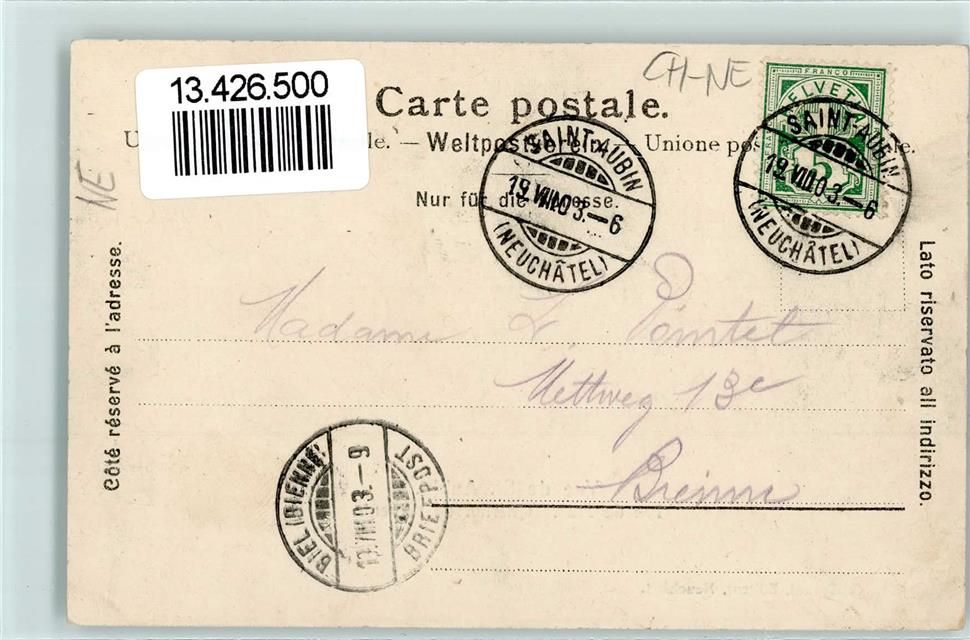 13.426.500
CH-NE
NE
Carte postale.
U le. — Weltpostverein. — Unione pos e.
Nur für die Adresse.
Côté réservé à l'adresse.
Lato riservato all indirizzo.
FRANCO
HELVETIA
5
SAINT-AUBIN
19.VIII.03.—6
(NEUCHÂTEL)
SAINT-AUBIN
19.VIII.03.—6
(NEUCHÂTEL)
Madame L.
Mettweg 13c
Bienne
BIEL (BIENNE)
19.VIII.03.—9
BRIEFPOST